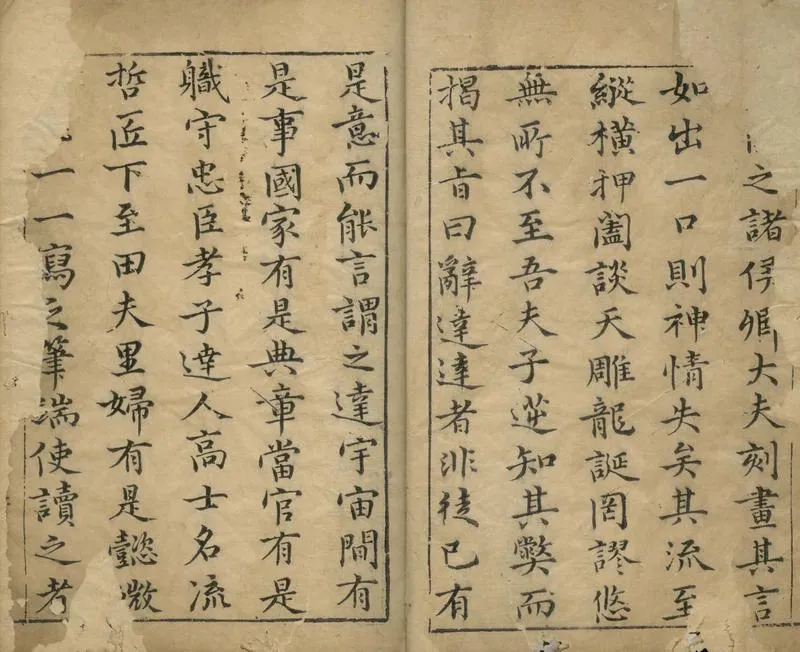 之諸侯卿大夫刻畫其言
如出一口則神情失矣其流至
縱橫押闔談天雕龍誕罔謬悠
無所不至吾夫子逆知其弊而
揭其旨曰辭達達者非徒已有
是意而能言謂之達宇宙間有
是事國家有是典章當官有是
職守忠臣孝子達人高士名流
哲匠下至田夫里婦有是懿微
一一寫之筆端使讀之者